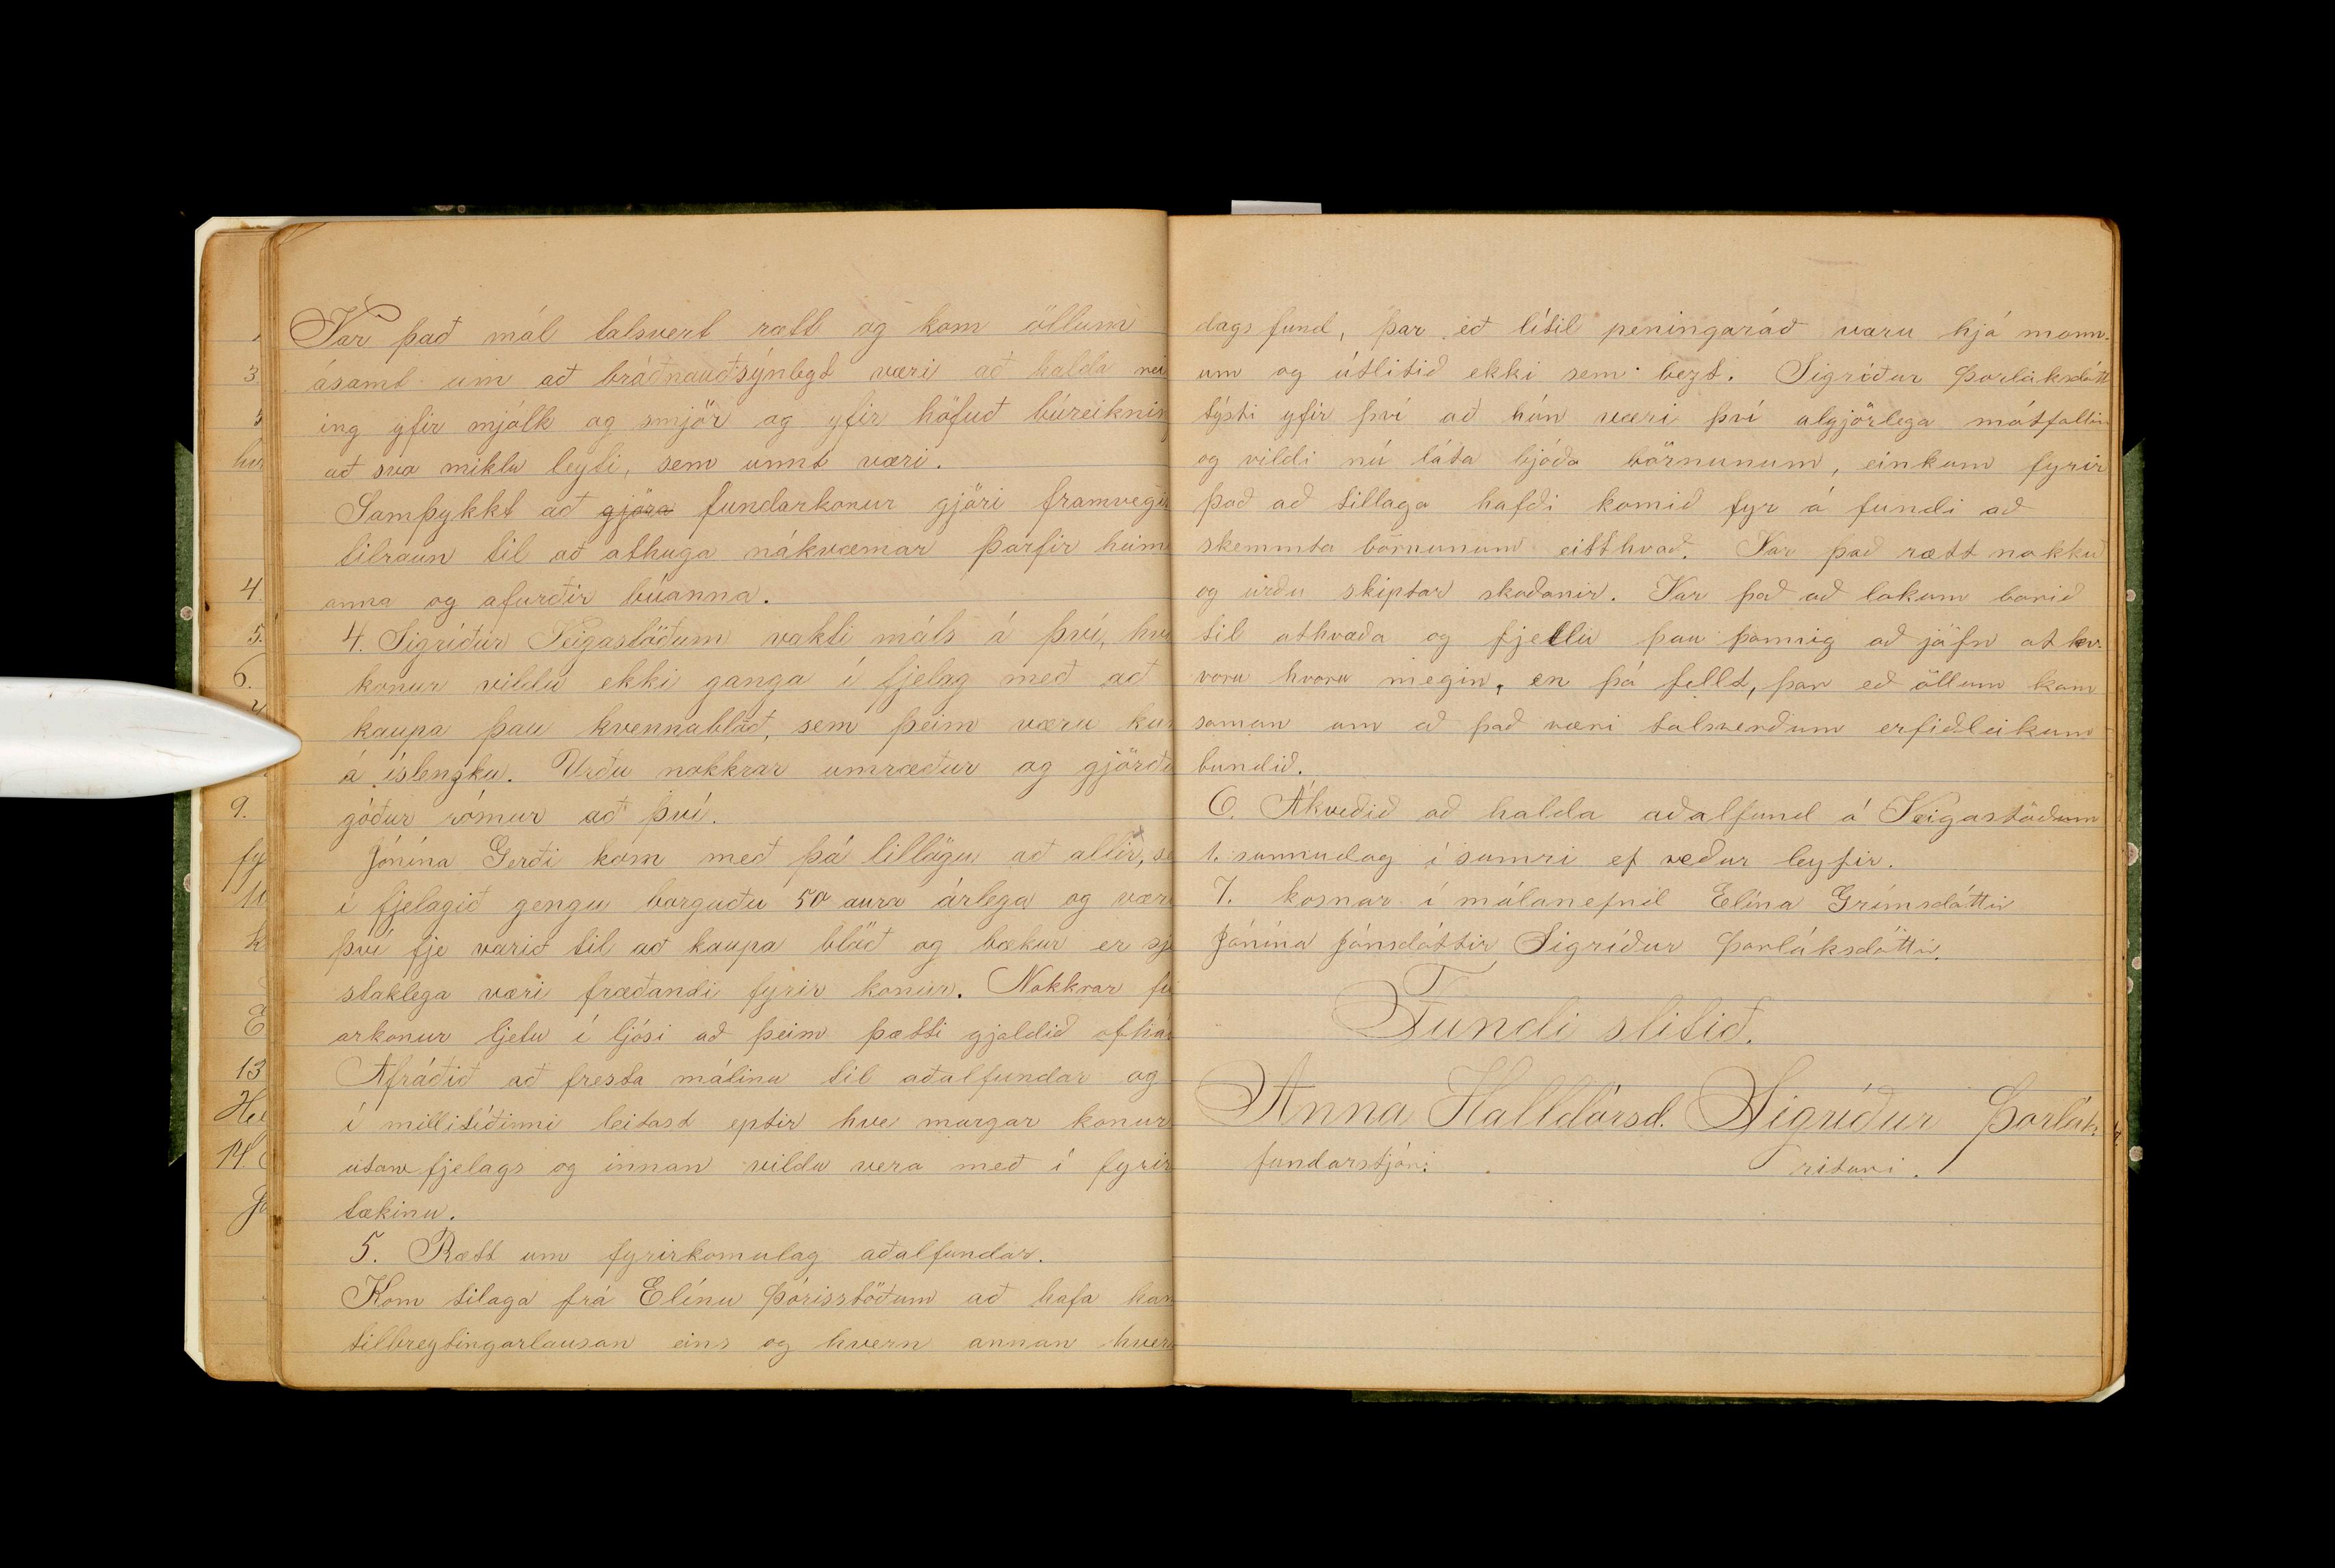 Var það mál talsvert rætt og kom öllum
ásamt um að bráðnauðsýnlegt væri að halda rei
ing yfir mjólk og smjör og yfir höfuð búreiknin
að svo miklu leyti, sem unnt væri.
Samþykkt að gjöra fundarkonur gjöri framvegis
tilraun til að athuga nákvæmar þarfir heim
anna og afurðir búanna.
4. Sigríður Veigastöðum vakti máls á því, hv
konur vildu ekki ganga í fjelag með að
kaupa þau kvennablöð, sem þeim væru kun
á íslenzku. Urðu nokkrar umræður og gjörðu
góður rómur að því.
Jónína Gerði kom með þá tillögu að allir, se
í fjelagið gengu borguðu 50 aura árlega og vær
því fje varið til að kaupa blöð og bækur er sje
staklega væri fræðandi fyrir konur. Nokkrar fu
arkonur ljetu í ljósi að þeim þætti gjaldið ofhá
Afráðið að fresta málinu til aðalfundar og
í millitíðinni leitast eptir hve margar konur
utan fjelags og innan vildu vera með í fyrir
tækinu.
5. Rætt um fyrirkomulag aðalfundar.
Kom tilaga frá Elínu Þórisstöðum að hafa han
tilbreytingarlausan eins og hvern annan hver
dags fund, þar eð lítil peningaráð væru hjá mönn-
um og útlitið ekki sem bezt. Sigríður Þorláksdótt
lýsti yfir því að hún væri því algjörlega mótfallin
og vildi nú láta bjóða börnunum, einkum fyrir
það að tillaga hafði komið fyr á fundi að
skemmta börnunum eitthvað. Var það rætt nokkuð
og urðu skiptar skoðanir. Var það að lokum borið
til athvæða og fjellu þau þannig að jöfn atkv.
voru hvoru megin, en þá fellt, þar eð öllum kom
saman um að það væri talsverðum erfiðleikum
bundið.
6. Ákveðið að halda aðalfund á Veigastöðum
1. sunnudag í sumri ef veður leyfir.
7. kosnar í málanefnd Elína Grímsdóttir
Jónína Jónsdóttir Sigríður Þorláksdóttir.
Fundi slitið.
Anna Halldórsd. Sigríður Þorlák
fundarstjóri ritari.